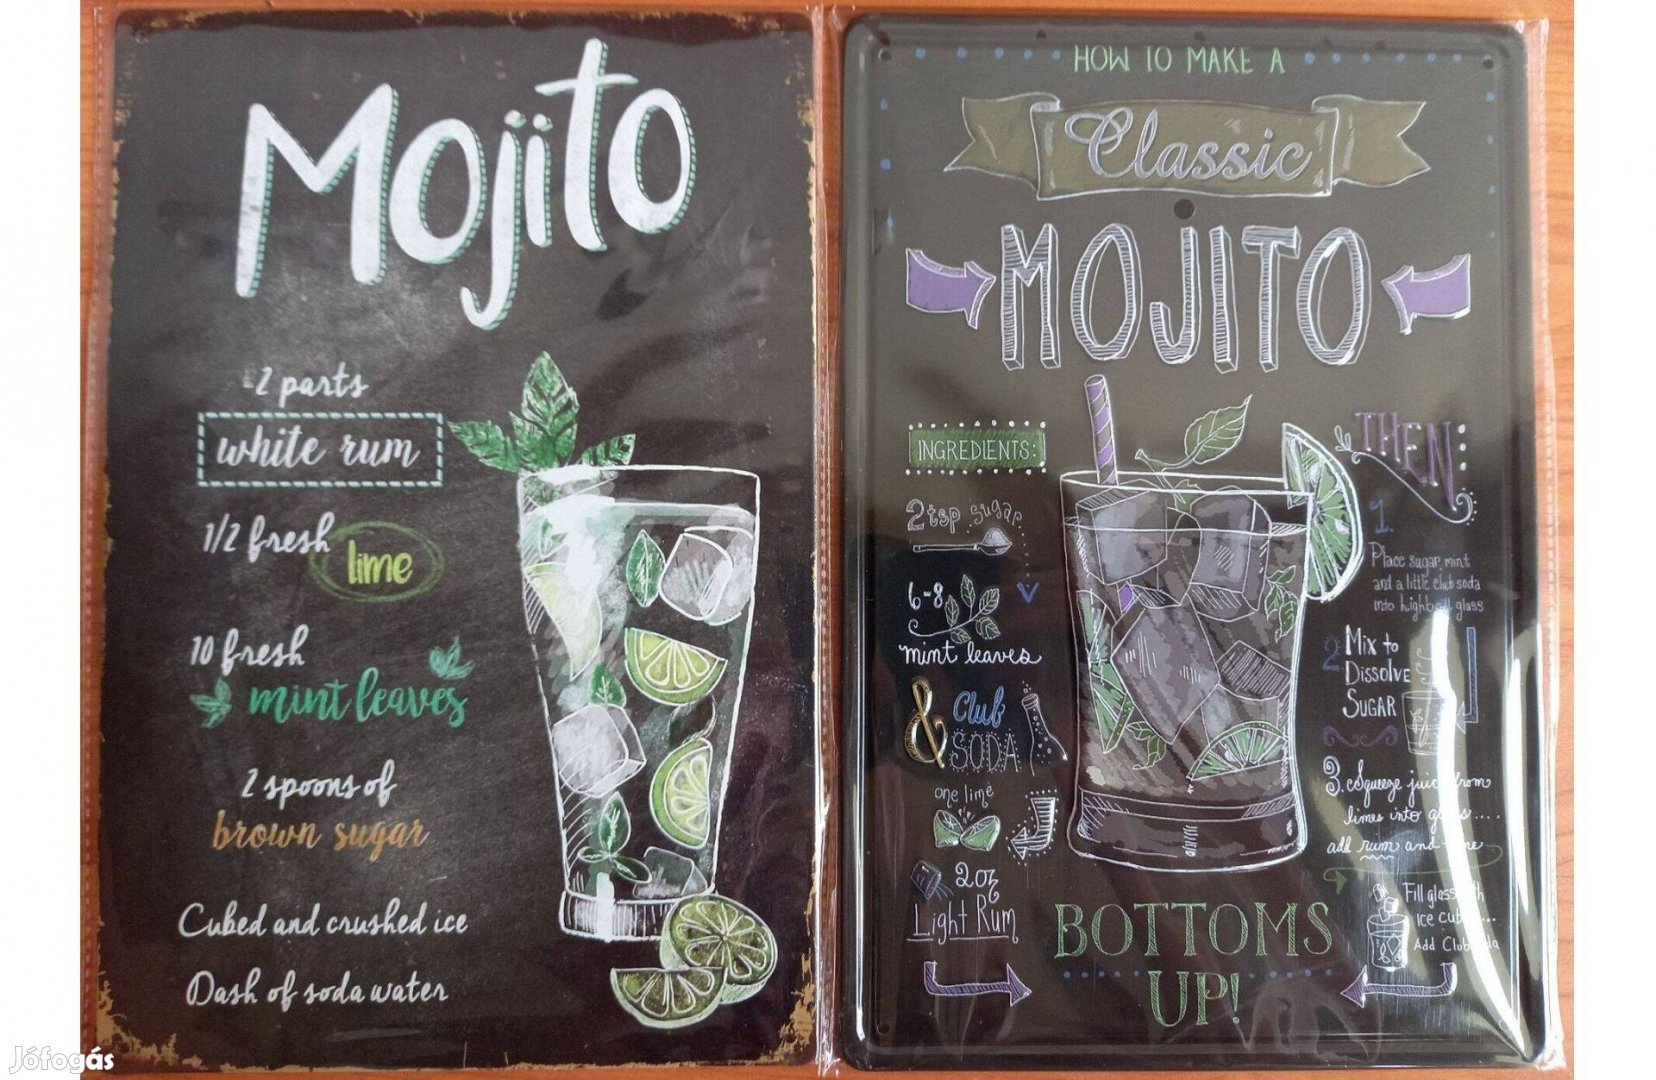 Mojito
2 parts
white rum
1/2 fresh
lime
10 fresh
mint leaves
2 spoons of
brown sugar
Cubed and crushed ice
Dash of soda water
HOW TO MAKE A
Classic
MOJITO
INGREDIENTS:
2 tsp sugar
6-8
mint leaves
& Club
SODA
one lime
2 oz
Light Rum
THEN
1.
Place sugar, mint
and a little club soda
into highball glass
2 Mix to
Dissolve
Sugar
3. Squeeze juice from
limes into glass....
add rum and
Fill glass with
ice cubes...
Add Club Soda
BOTTOMS
UP!
Jófogás